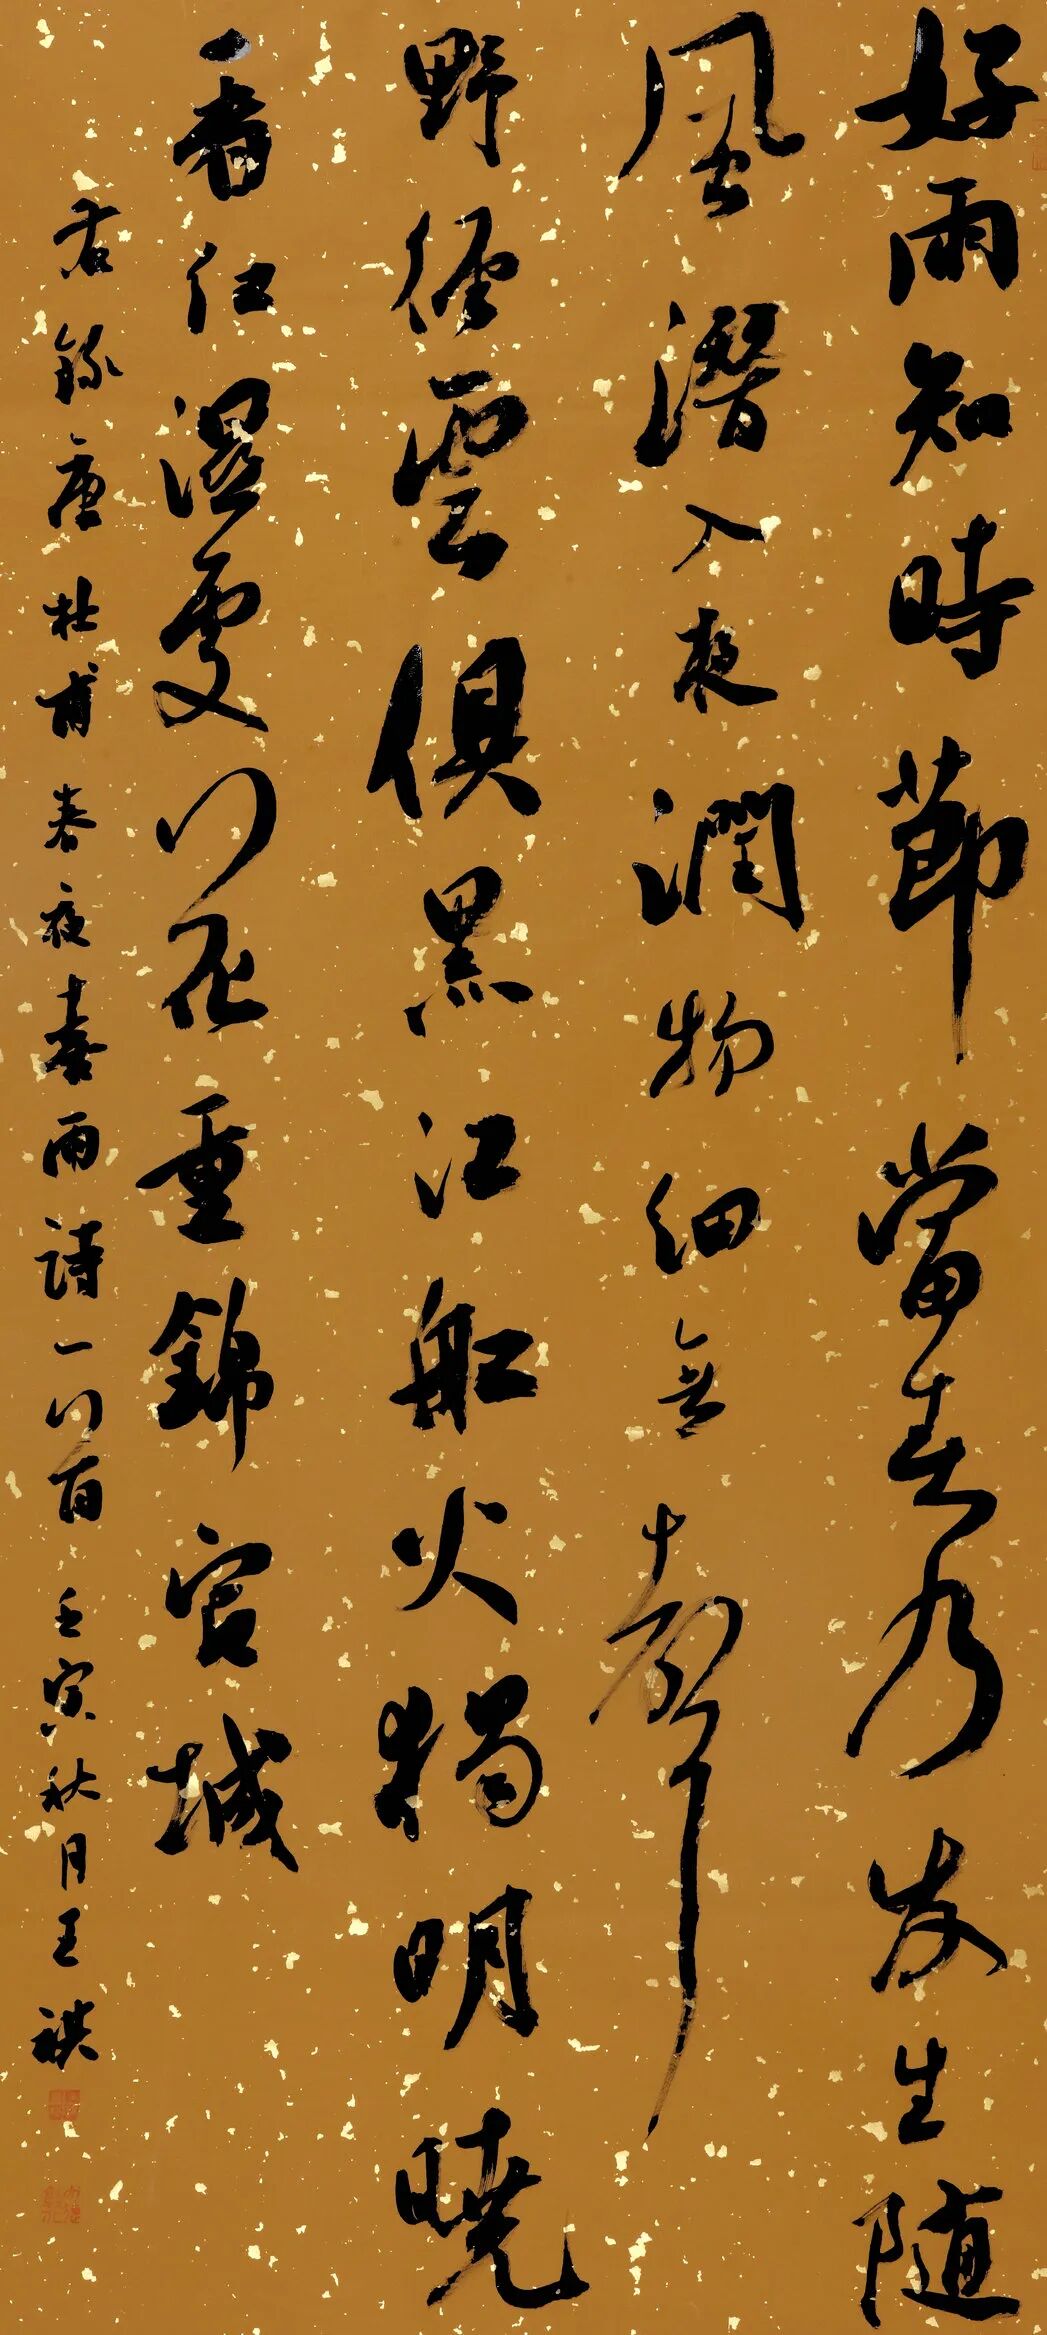 好雨知時節當春乃发生随
風潛入夜潤物細無聲
野徑雲俱黑江船火獨明曉
看红濕處花重錦官城
右錄唐杜甫春夜喜雨詩一首壬寅秋月王祺